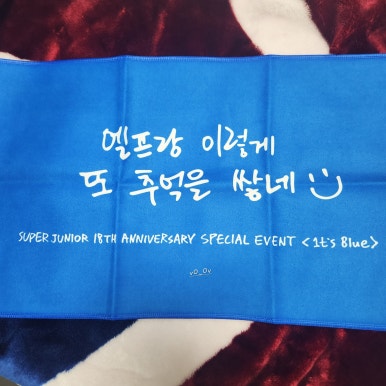 엘프랑 이렇게
또 추억을 쌓네 :)
SUPER JUNIOR 18TH ANNIVERSARY SPECIAL EVENT <1t's Blue>
vO_Ov